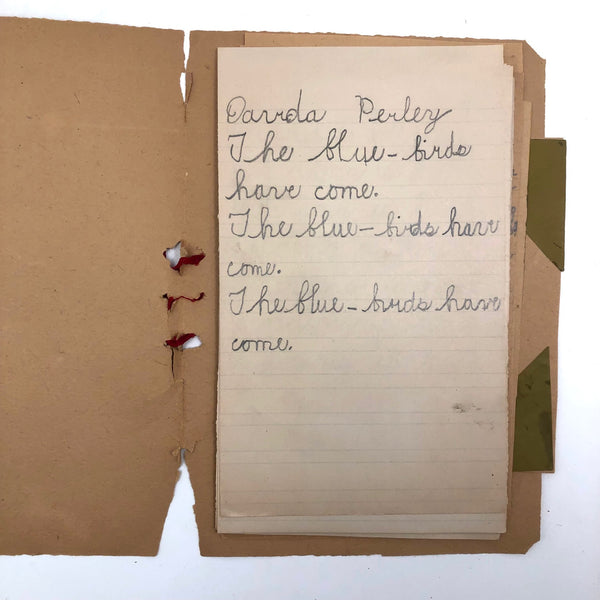 Davida Perley
The blue-birds
have come.
The blue-birds have
come.
The blue-birds have
come.